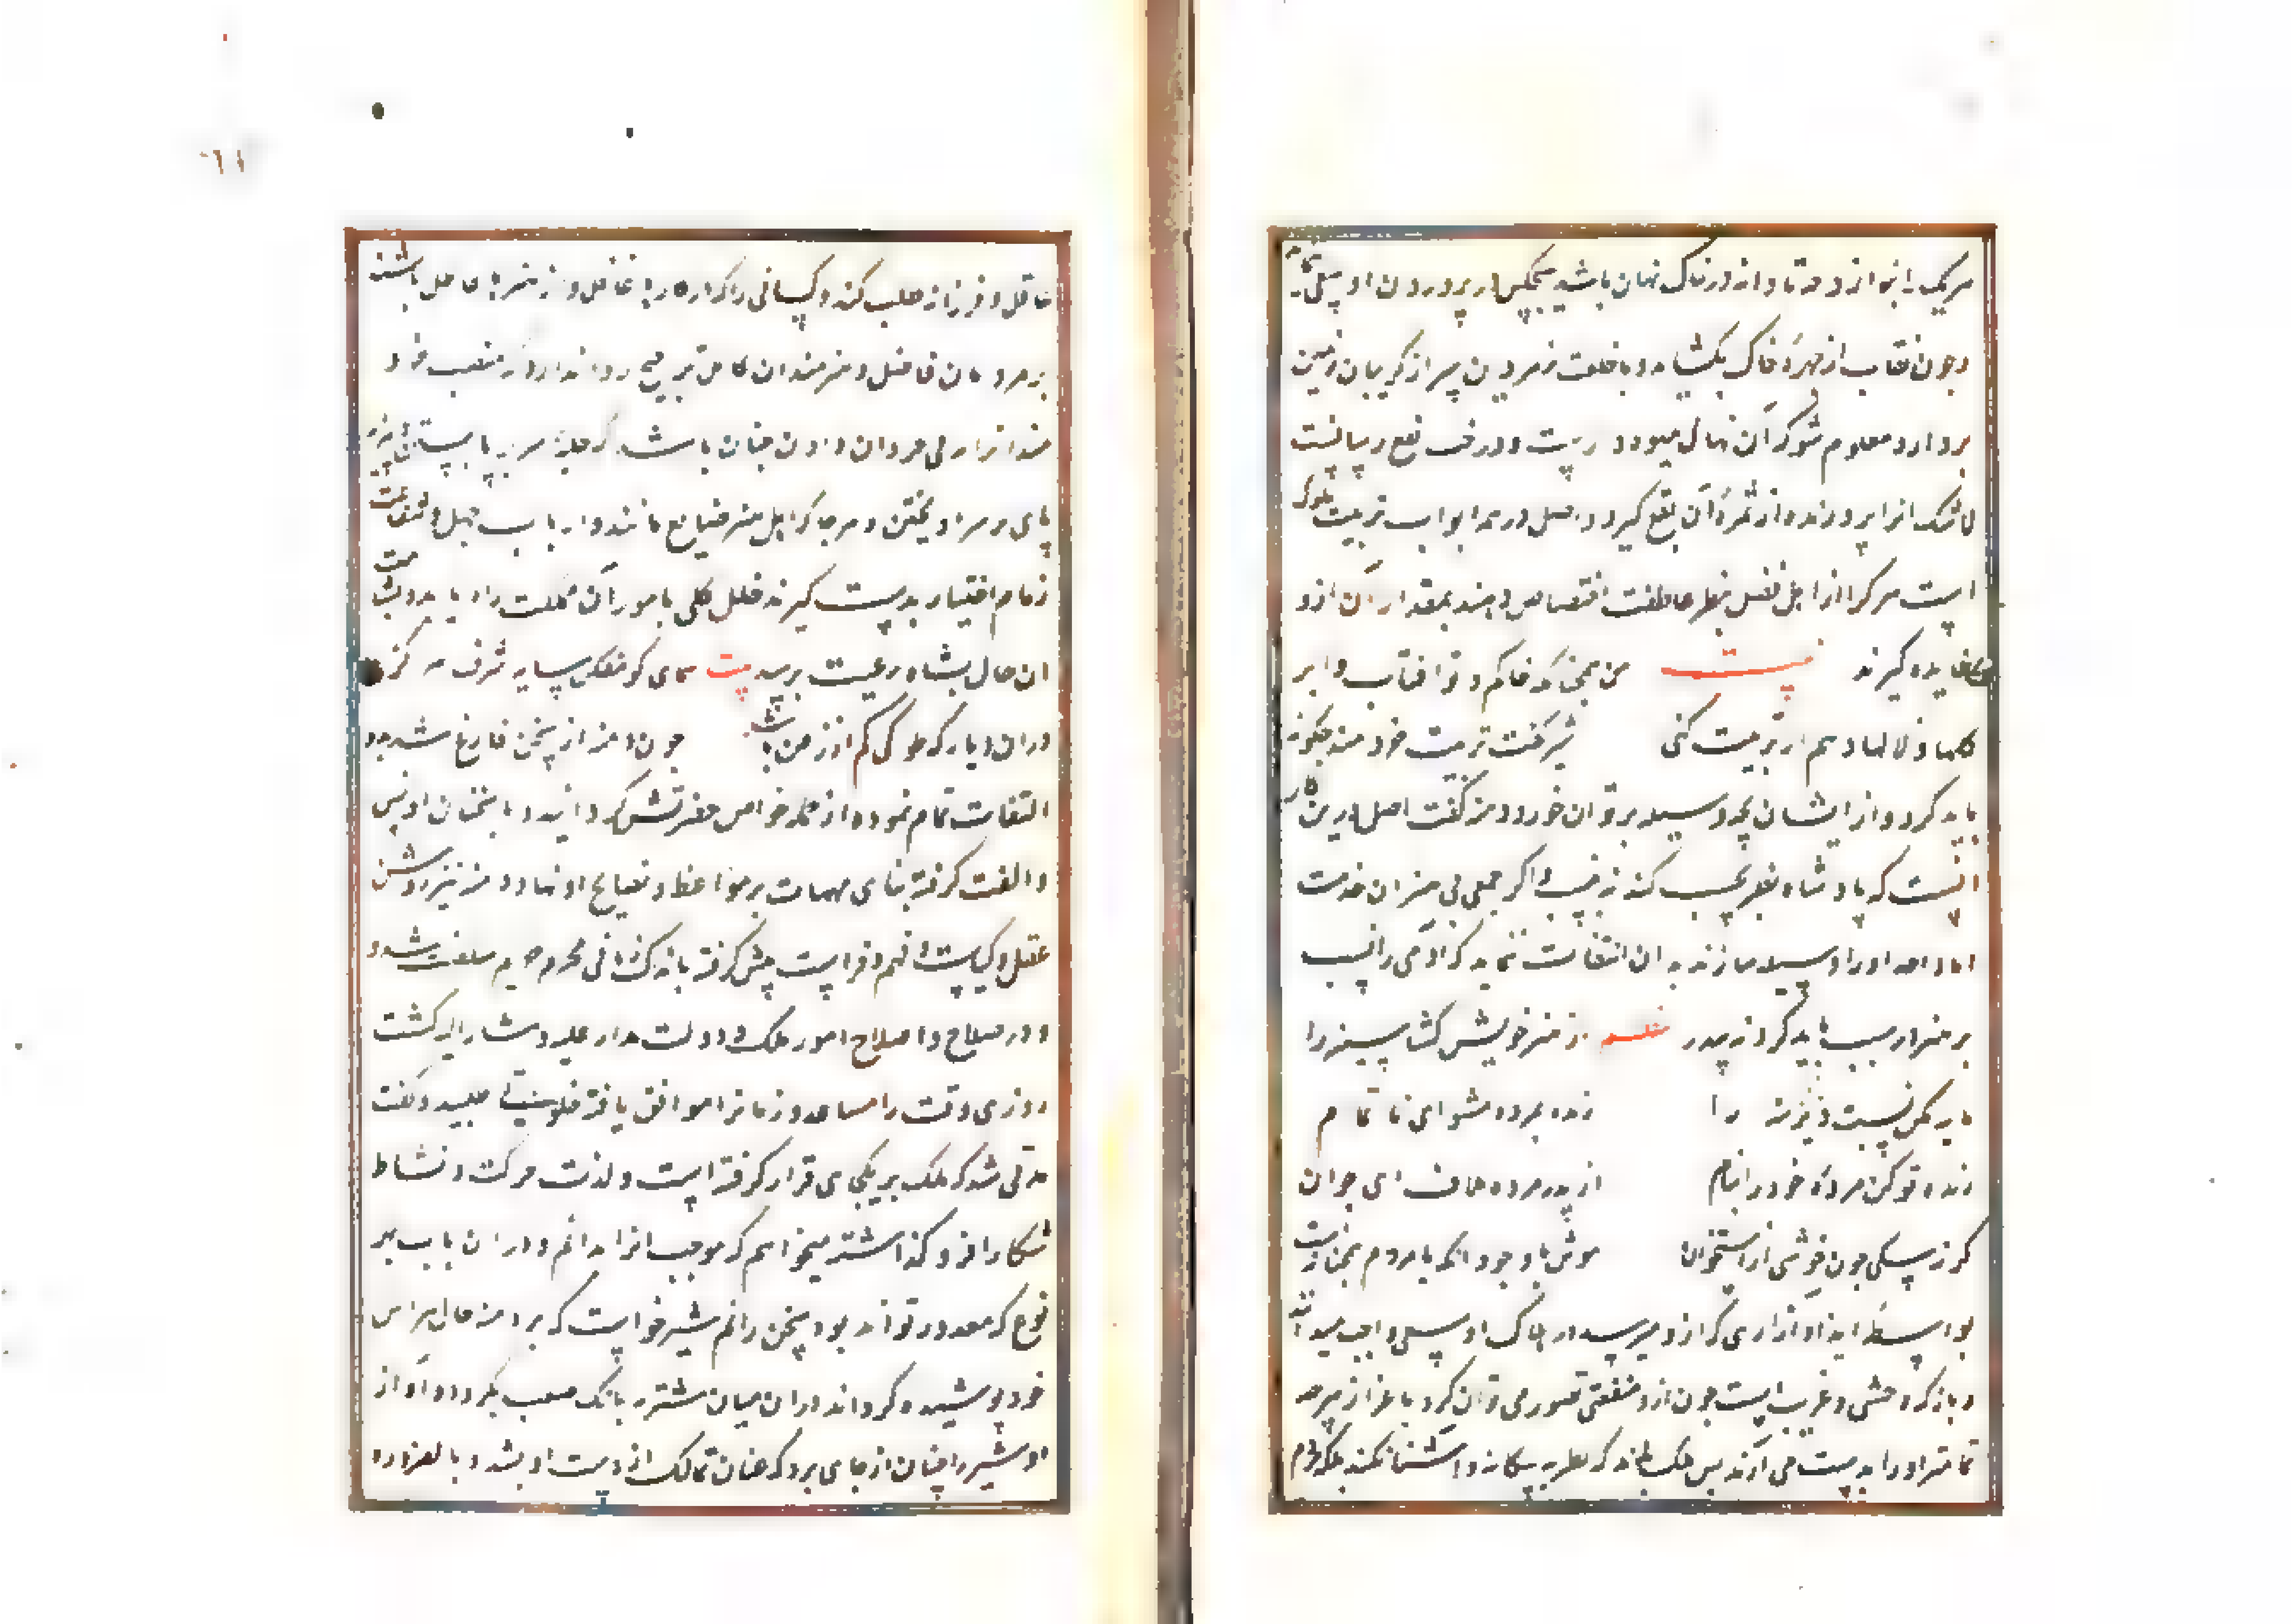 هریک را بنوازد و تا دانه در خاک نهان باشد هیچکس در پروردن او سعی نماید
و چون نقاب از چهره خاک بکشاید و با خلعت زمردین سر از گریبان زمین
بردارد معلوم شود که آن نهال میوه دار است و درخت نفع رسانست
لاشک انرا پرورند و از ثمره آن نفع گیرند و اصل در همه ابواب تربیت ملوک
است هرکرا از اهل فضل بنظر عاطفت اختصاص دهند بمقدار آن ازو
فایده گیرند بیت من همچو خاکم و تو افتاب و ابر
کلها و لالها دهم ار تربیت کنی شیر گفت تربیت خردمند چگونه
باید کرد و از ایشان بچه وسیله بر توان خورد دمنه گفت اصل درین کار
انست که پادشاه نظر بحسب کند نه نسب و اگر جمعی بی هنران خدمت
ابا و اجداد را وسیله سازند بدان التفات ننماید که ادمی را نسب
بهنر درست باید کرد نه پدر نظم از هنر خویش کشا سینه را
مایه مکن نسبت دیرینه را زنده بمرده مشو ای نا تمام
زنده تو کن مرده خود را بنام از پدر مرده ملاف ای جوان
گر نه سکی چون خوشی از استخوان موش با وجود انکه با مردم همخانه است
بواسطه ایذا و آزاری که ازو میرسد در هلاک او سعی واجب میدانند
و باز که وحشی و غریب است چون ازو منفعتی تصور می توان کرد باعزاز هرچه
تمامتر او را بدست می آرند پس ملک باید که نظر به بیگانه و آشنا نکند بلکه مردم
عاقل و فرزانه طلب کند و کسانی را که در کارها غافل و از هنرها عاطل باشند
بر مردمان فاضل و هنرمندان کامل ترجیح روا ندارد که منصب خرد
مندانرا به بی خردان دادن چنان باشد که حلیه سر بر پا بستن و پیرایه
پای بر سر اویختن و هرجا که اهل هنر ضایع مانند و ارباب جهل و سفاهت
زمام اختیار بدست گیرند خلل کلی بامور آن مملکت راه یابد و شامت
ان حال بشاه و رعیت برسد بیت همای کو مفکن سایه شرف هرگز
دران دیار که طوطی کم از زغن باشد چون دمنه از سخن فارغ شد شیر بدو
التفات تمام نموده از جمله خواص حضرتش گردانید و با سخنان او انس
و الفت گرفته بنای مهمات بر مواعظ و نصایح او نهاد دمنه نیز روش
عقل و کیاست و فهم و فراست پیش گرفته باندک زمانی محرم حریم سلطنت شد
و در صلاح و اصلاح امور ملک و دولت مدار علیه و مشار الیه گشت
روزی وقت را مساعد و زمانرا موافق یافته خلوتی طلبید و گفت
مدتی شد که ملک بر یکجای قرار گرفته است و لذت حرکت و نشاط
شکار را فرو گذاشته میخواهم که موجب انرا بدانم و دران باب بهر
نوع که مقدور تواند بود سخن رانم شیر خواست که بر دمنه حال هراس
خود پوشیده گرداند دران میان شنزبه بانک صعب بکرد و آواز
او شیر را چنان از جای برد که عنان تمالک از دست او بشد و بالضروره